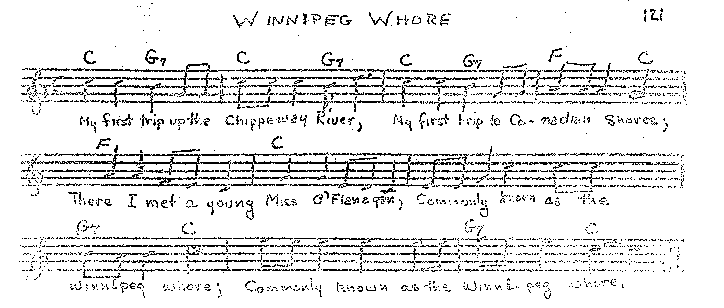 WINNIPEG WHORE 121
C G7 C G7 C G7 F C
My first trip up the Chippeway River, My first trip to Ca-nadian Shores;
F C
There I met a young Miss O'Flanagan, Commonly known as the
G7 C G7 C
Winnipeg whore; Commonly known as the Winnipeg whore.